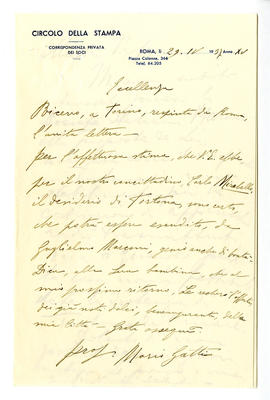 CIRCOLO DELLA STAMPA
CORRISPONDENZA PRIVATA
DEI SOCI
ROMA, li 29. IV 1937 Anno XV
Piazza Colonna, 366
Telef. 64.205
Eccellenza
Ricevo, a Torino, respinta da Roma,
l'unita lettera -
per l'affettuosa stima, che V.E. ebbe
per il nostro concittadino, Carlo Mirabello
il desiderio di Tortona, son certo,
che potrà essere esaudito, da
Guglielmo Marconi, genio anche di bontà -
Dica, alla Sua bambina, che al
mio prossimo ritorno, Le recherò
dei più noti dolci, della
mia città - Grato ossequio
prof. Mario Gatti